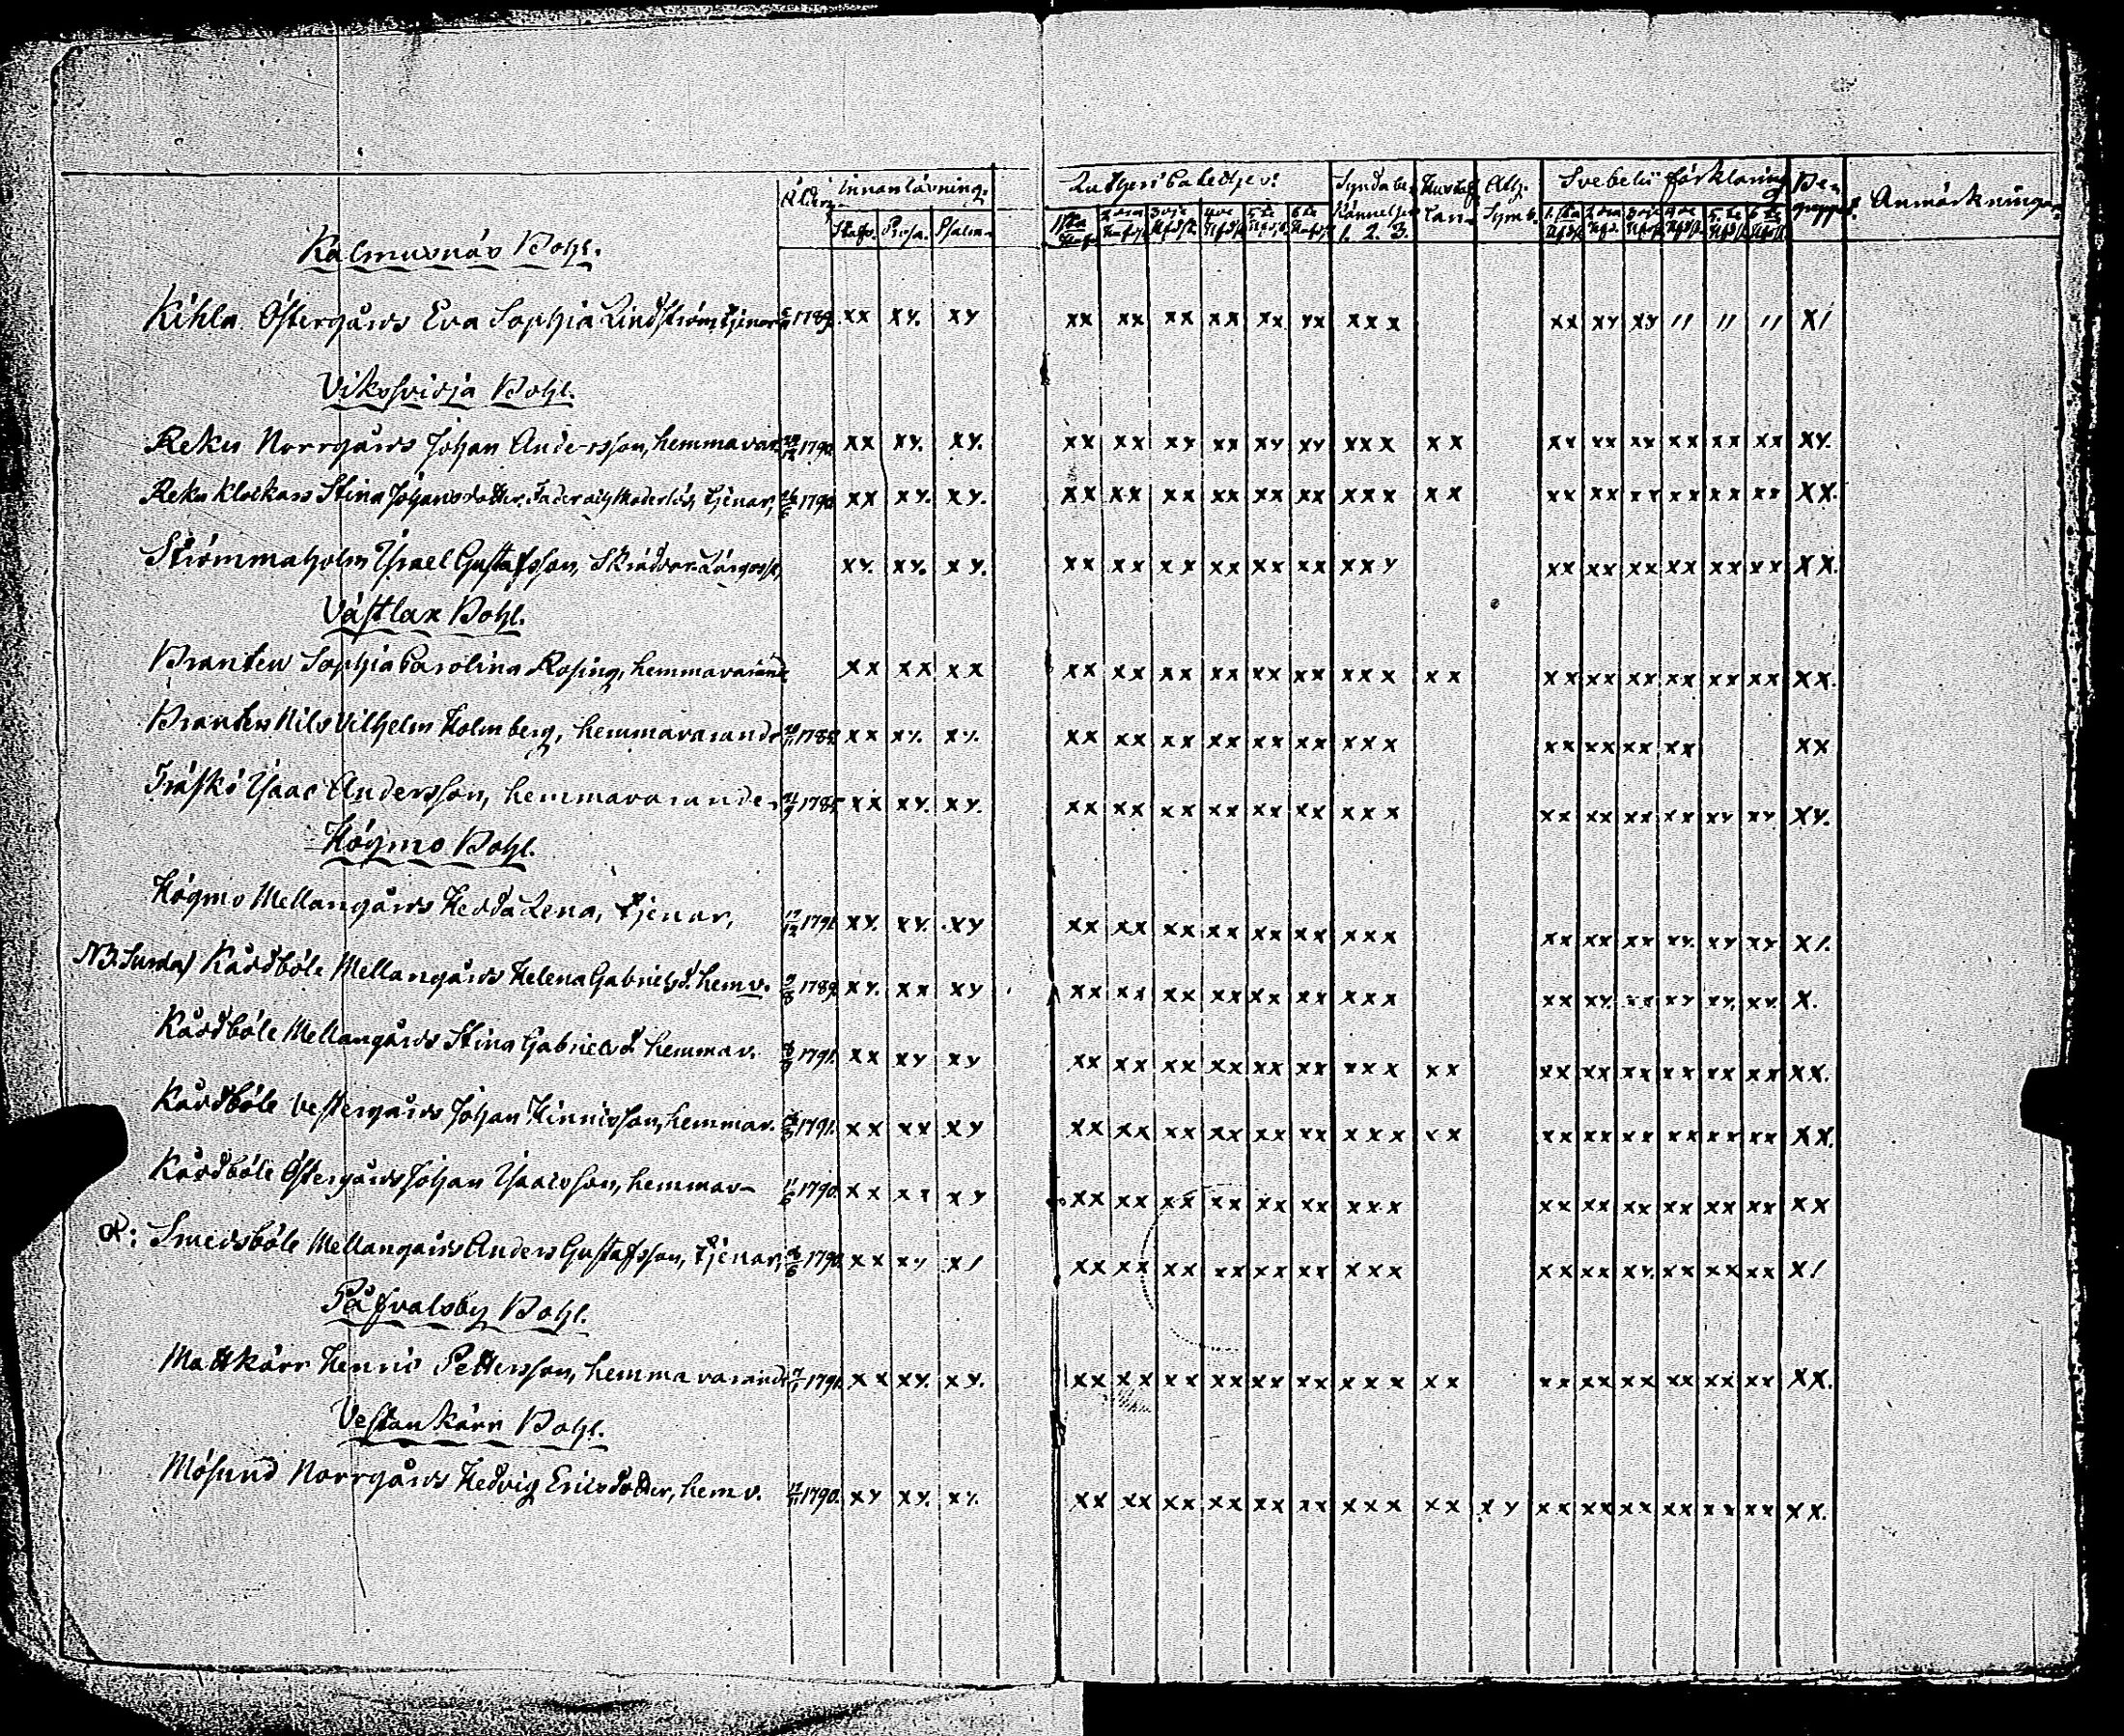 Ålder. Innanläsning. Lutheri Cateches: Syndabe- Hustafl. Ath. Svebelii förklaring Be- Anmärkningar
Kännelsen Symb. grepp
Stafn. Prosa. Psalm. 1. 2. 3.
Kalmusnäs Bohl.
Kihla Östergårds Eva Sophia Lindström, tjenar 1789. xx xy. xy xx xx xx xx xx yx xxx xx xy xy 11 11 11 x/
Viksvidja Bohl.
Reku Norrgårds Johan Andersson, hemmavar. 1790 xx xy. xy. xx xx xy xx xy xy xxx xx xy xx xx xx xx xx xy.
Reku Klockars Stina Johansdotter, Fader och Moderlös, tjenar, 1790 xx xy. xy. xx xx xx xx xx xx xxx xx xx xx xy xx xx xx xx.
Strömmaholm Israel Gustafsson, Skräddar Lärgosse, xy. xy. xy. xx xx xx xx xx xx xxy xx xx xx xx xx xx xx.
Västlax Bohl.
Branten Sophia Carolina Rosing, hemmavarande xx xx xx xx xx xx xx xx xx xxx xx xx xx xx xx xx xx xx.
Branten Nils Vilhelm Holmberg, hemmavarande 1789. xx xy. xy. xx xx xx xx xx xx xxx xx xx xx xx xx
Träskö Isaac Andersson, hemmavarande 1785 xx xy. xy. xx xx xx xx xx xx xxx xx xx xx xx xy xy. xy.
Högmo Bohl.
Högmo Mellangårds Hedda Lena, tjenar, 17/12 1791. xy. xy. xy xx xx xx xx xx xx xxx xx xx xx xy. xy xy x/.
NB. Kårdböle Mellangårds Helena Gabrielsd. hemv. 9/8 1789. xy. xx xy xx xx xx xx xx xx xxx xx xy. xx xy xy. xy. x.
Kårdböle Mellangårds Stina Gabrielsd. hemmav. 1791. xx xy xy xx xx xx xx xx xx xxx xx xx xx xx xx xx xx xx.
Kårdböle Vestergårds Johan Hinricsson, hemmav. 1791. xx xx xy xx xx xx xx xx xx xxx xx xx xx xx xx xx xx xx.
Kårdböle Östergårds Johan Isaacsson, hemmav. 11/6 1790. xx xx xy xx xx xx xx xx xx xxx xx xx xx xx xx xx xx
Smedsböle Mellangårds Anders Gustafsson, tjenar, 1790. xx xy x/ xx xx xx xx xx xx xxx xx xx xy. xx xx xx x/
Påfvalsby Bohl.
Mattkärr Henric Pettersson, hemmavarande 1791. xx xy. xy. xx xx xx xx xx xx xxx xx xx xx xx xx xx xx xx.
Vestankärr Bohl.
Mösund Norrgårds Hedvig Ericsdotter, hemv. 1790. xy xy. xy. xx xx xx xx xx xx xxx xx xy xx xx xx xx xx xx xx.